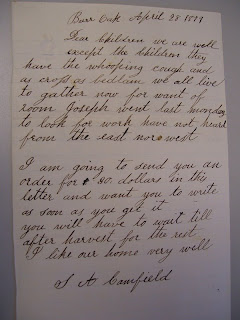 Burr Oak April 28 1879
Dear Children we are well
except the Children they
have the whooping cough and
as cross as bedlam we all live
to gather now for want of
room Joseph went last monday
to look for work have not heart
from the east nor west
I am going to send you an
order for 80. dollars in this
letter and want you to write
as soon as you get it
you will have to wait till
after harvest for the rest
I like our home very well
S A Camfield